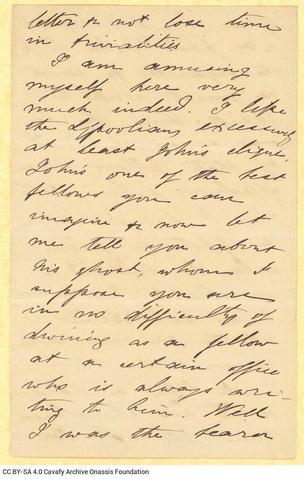 letter & not lose time
in trivialities
I am amusing
myself here very
much indeed. I like
the L'poolians excessively
at least John's clique.
John's one of the best
fellows you can
imagine & now let
me tell you about
his ghost, whom I
suppose you are
in no difficulty of
divining as a fellow
at a certain office
who is always wri-
ting to him. Well
I was the bearer
CC BY-SA 4.0 Cavafy Archive Onassis Foundation